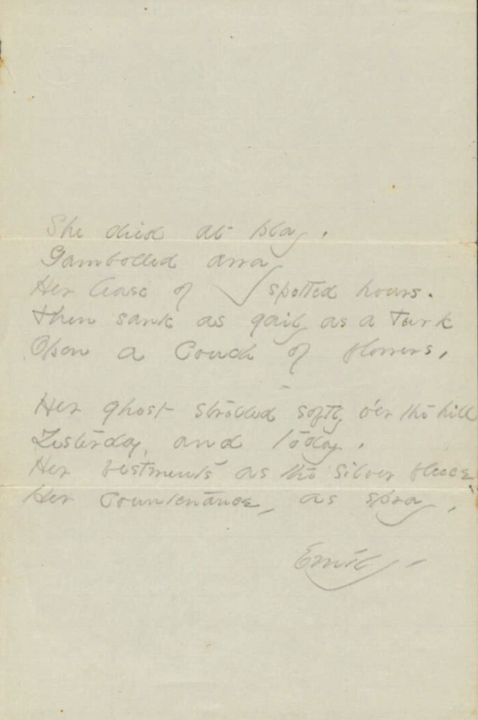 She died at play,
Gambolled away
Her lease of spotted hours.
Then sank as gaily as a Turk
Upon a Couch of flowers,
Her ghost strolled softly o'er the hill
Yesterday, and Today.
Her vestments as the silver fleece
Her countenance, as spray,
Emily